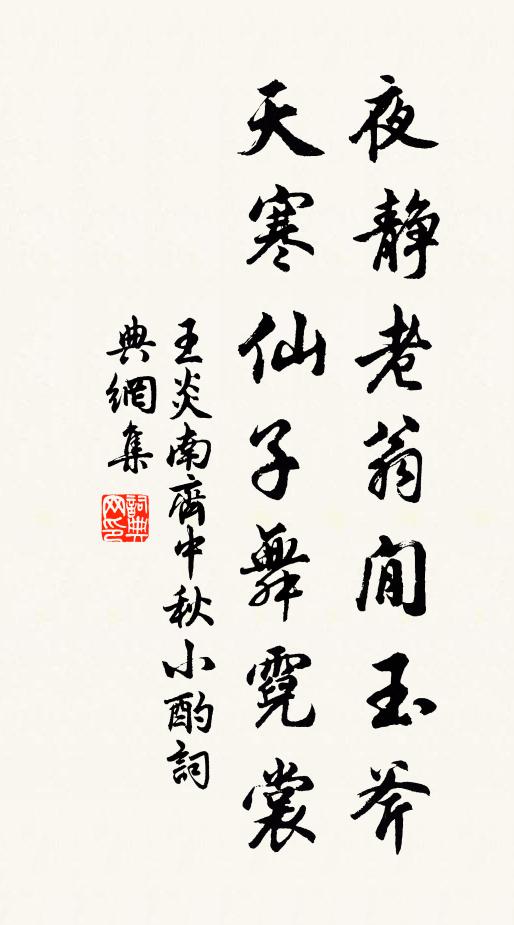 夜静老翁閒玉斧
天寒仙子舞霓裳
王炎南齊中秋小酌詞
典網集
詞典网印